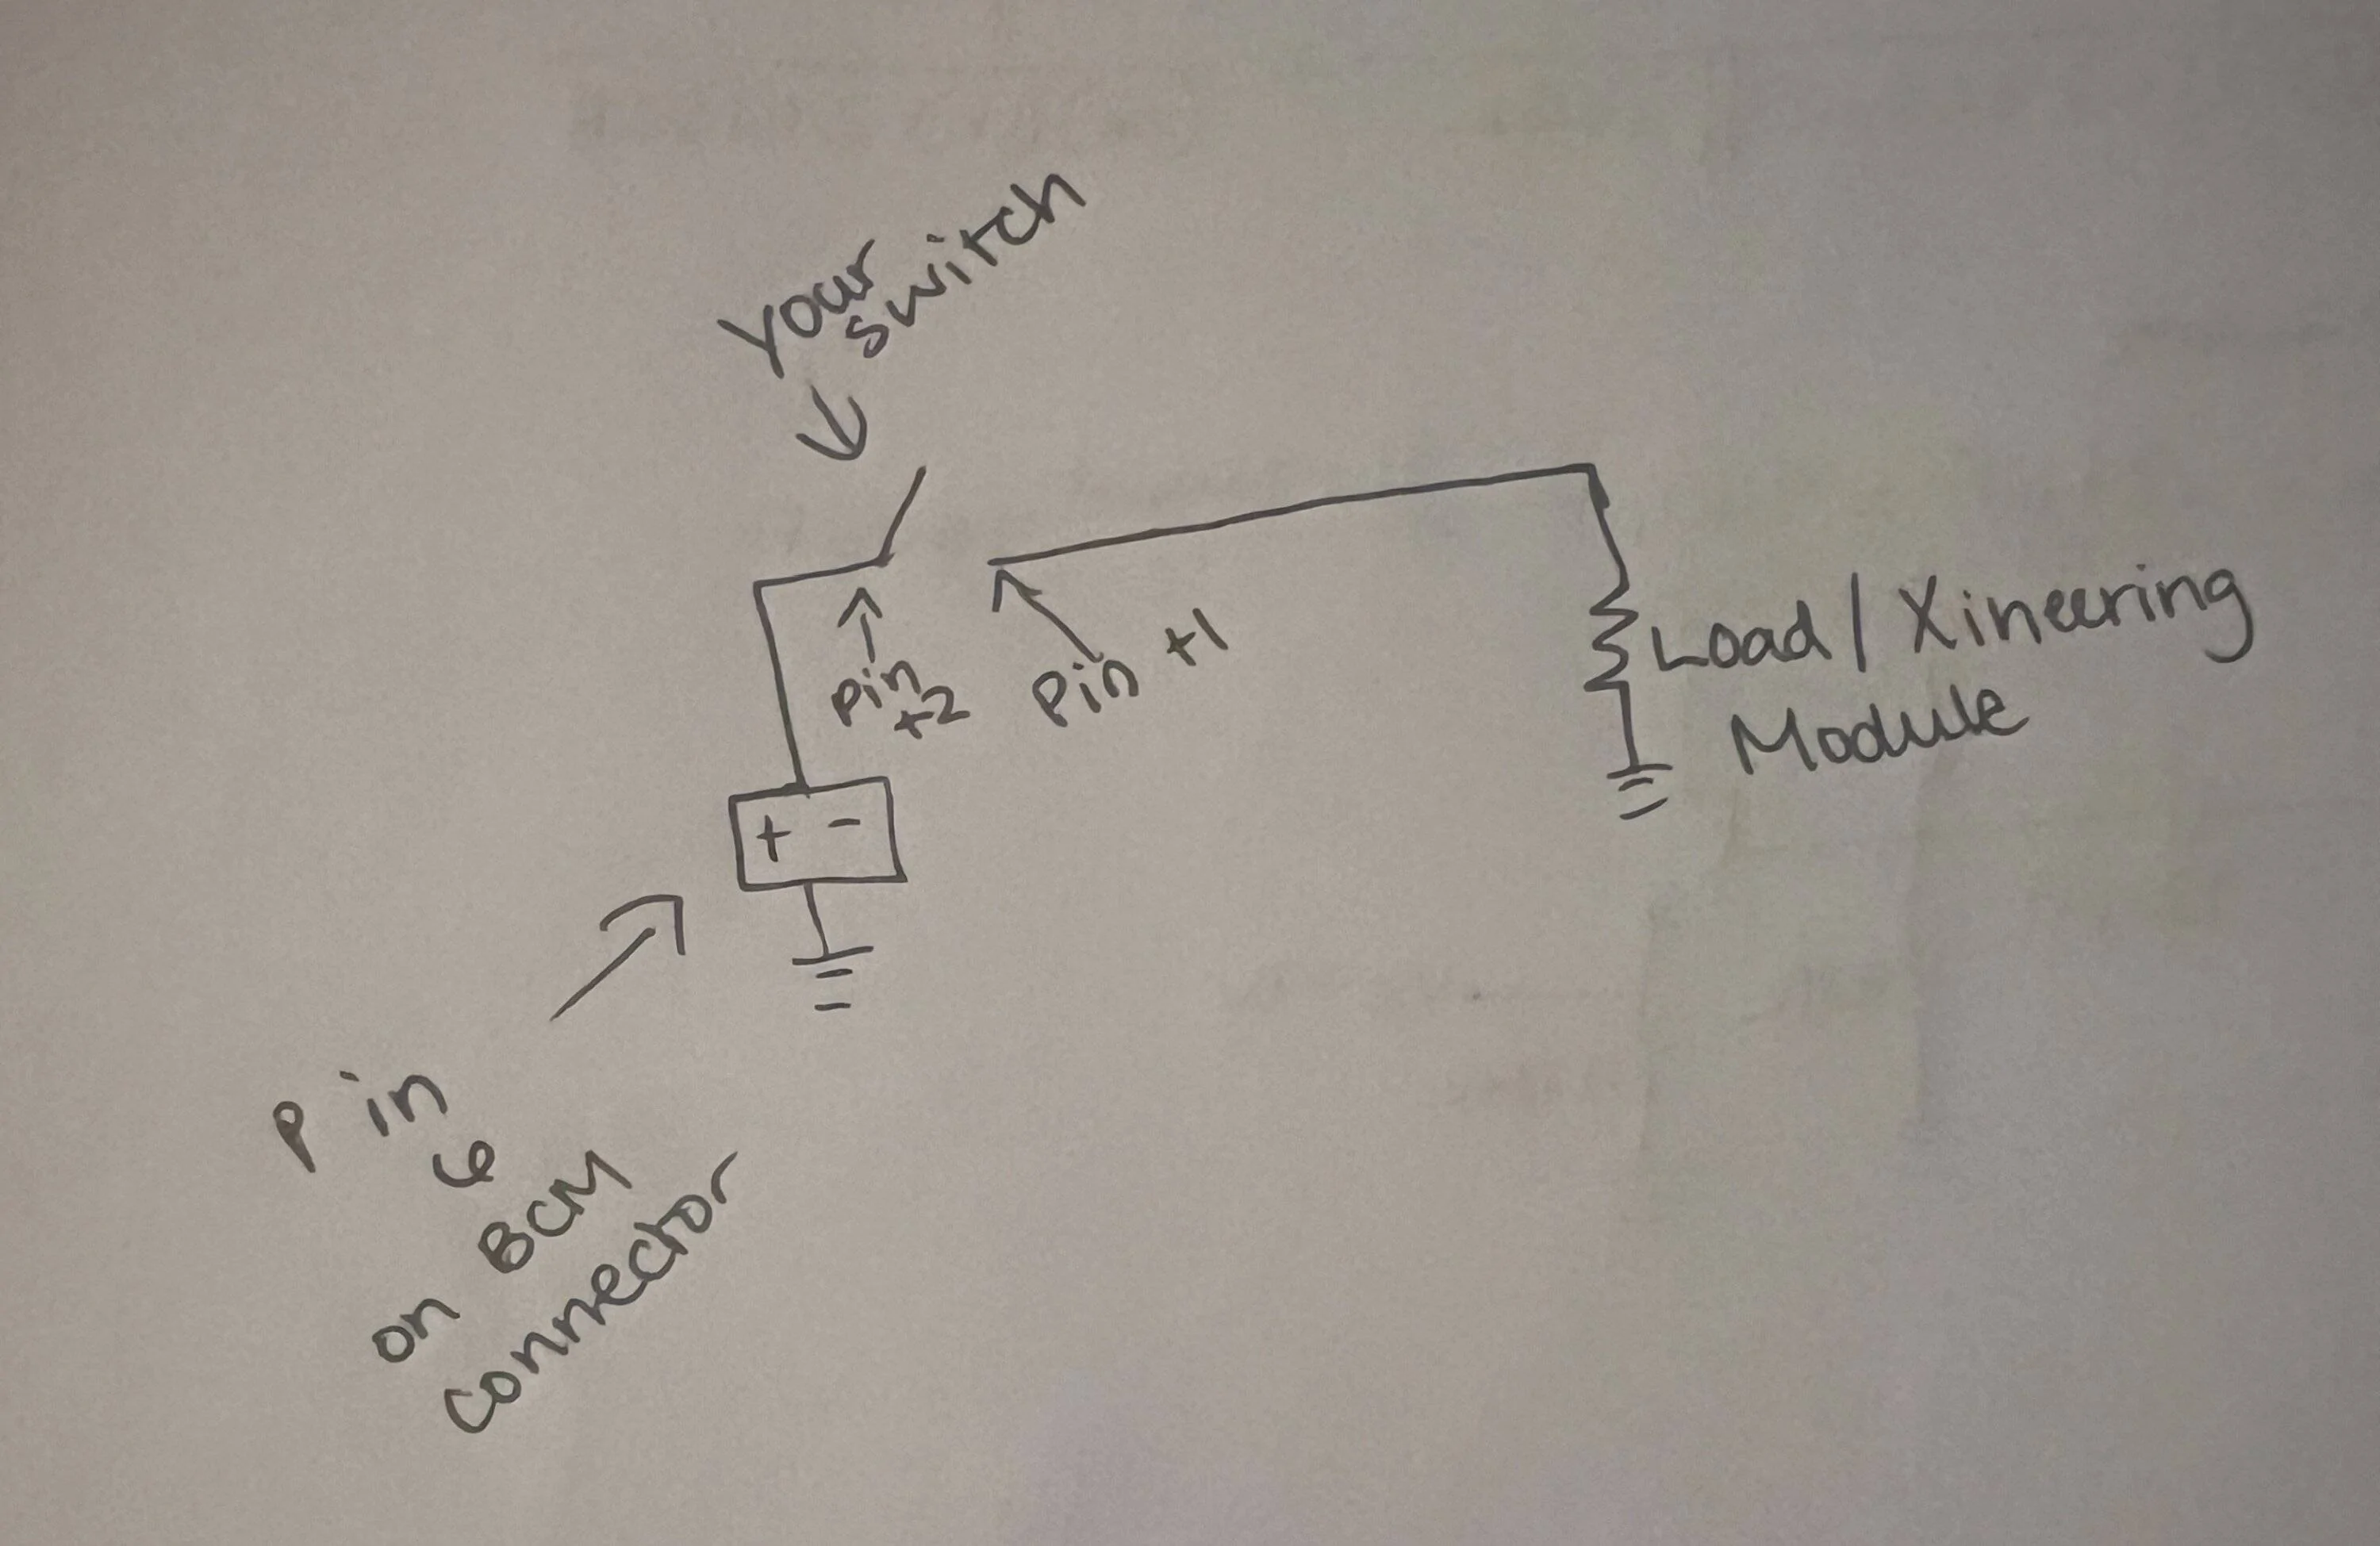 your
switch
Pin
+2
Pin +1
Load / Xineering
Module
+ -
Pin
6
on BCM
connector